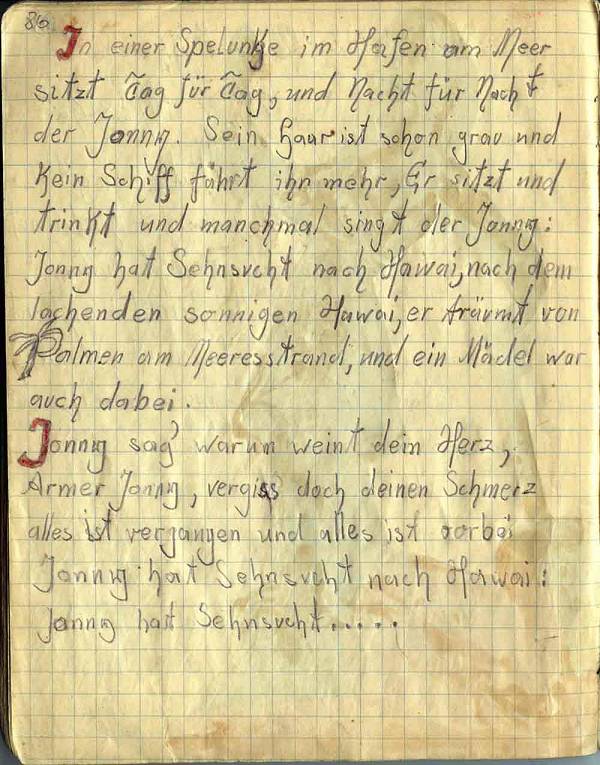 86
In einer Spelunke im Hafen am Meer
sitzt Tag für Tag, und Nacht für Nacht
der Jonny. Sein Haar ist schon grau und
Kein Schiff fährt ihn mehr, Er sitzt und
trinkt und manchmal singt der Jonny:
Jonny hat Sehnsucht nach Hawai, nach dem
lachenden sonnigen Hawai, er träumt von
Palmen am Meeresstrand, und ein Mädel war
auch dabei.
Jonny sag' warum weint dein Herz,
Armer Jonny, vergiss doch deinen Schmerz
alles ist vergangen und alles ist vorbei
Jonny hat Sehnsucht nach Hawai:
Jonny hat Sehnsucht.....